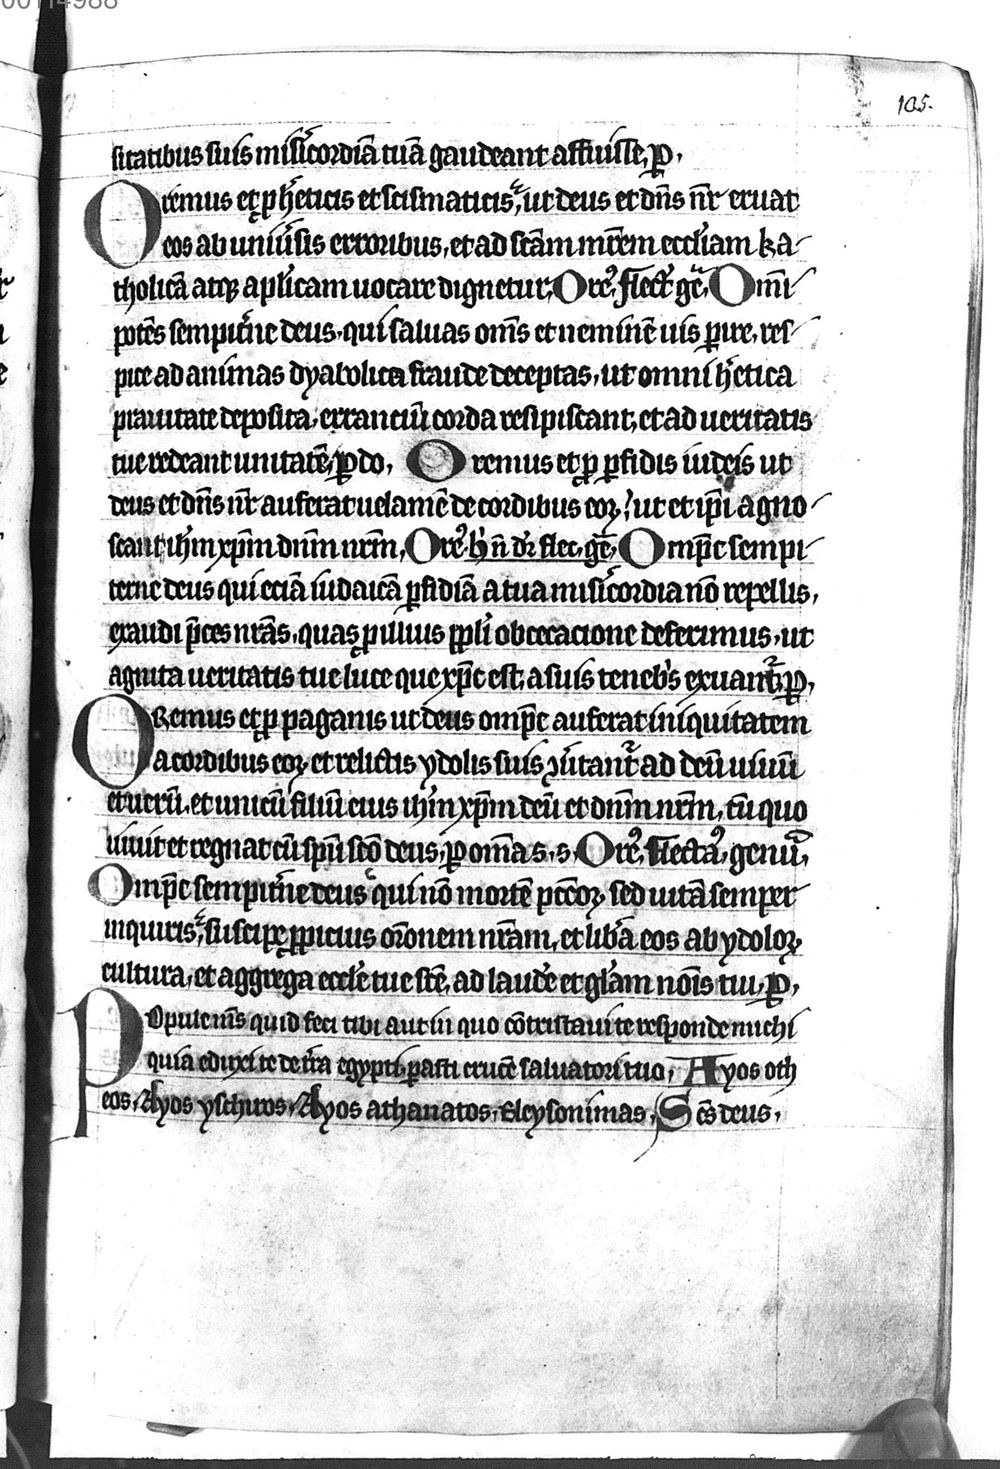 00114988
105.
sitatibus suis misicordiā tuā gaudeant affuisse. p̄.
Oremus et p hēticis et scismaticis, ut deus et dn̄s nr̄ eruat
eos ab uniusis erroribus, et ad scām mrēm eccliam ka-
tholicā atq; aplicam uocare dignetur. Orē. flect gē. Omi-
potēs sempitne deus, qui saluas om̄s et neminē uis pire, res-
pice ad animas dyabolica fraude deceptas, ut omni hetica
prauitate deposita, errantiū corda resipiscant, et ad ueritatis
tue redeant unitatē. p do. Oremus et p pfidis iudeis ut
deus et dn̄s nr̄ auferat uelamē de cordibus eoꝝ, ut et ip̄i agno-
scant ihm xp̄m dnm nrm. Orē. h n dr flec. gē. Omp̄c sempi-
terne deus qui eciā iudaicā pfidiā a tua misicordia nō repellis,
exaudi p̄ces nrās, quas p illius ppli obcecacione deferimus, ut
agnita ueritatis tue luce que xp̄c est, a suis tenebs exuant. p.
ORemus et p paganis ut deus omp̄c auferat iniquitatem
a cordibus eoꝝ, et relictis ydolis suis ꝯuitant ad deū uiuū
et uerū, et unicū filiū eius ihm xp̄m deū et dnm nrm, cū quo
uiuit et regnat cū spū scō deus, p omīa s. s. Orē. flecta. genu.
Omp̄c sempitne deus qui nō mortē pccōꝝ, sed uitā semper
inquiris, suscipe ppicius orōnem nrām, et libā eos ab ydoloꝝ
cultura, et aggrega eccle tue scē, ad laudē et glām nōis tui. p.
POpule ms quid feci tibi aut in quo cōtristaui te responde michi
quia eduxi te de tra egypti, parasti crucē saluatori tuo. Ayos oth
eos, Ayos yschiros, Ayos athanatos, Eleyson imas, Scs deus.